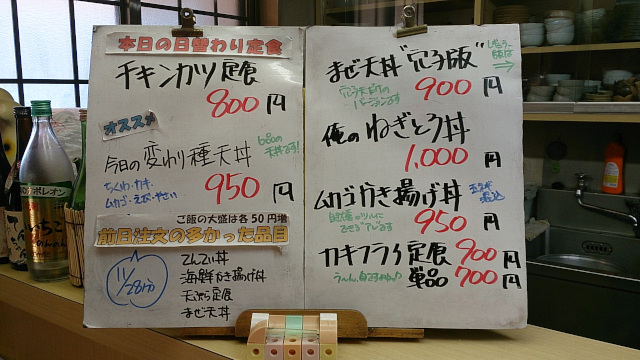 本日の日替わり定食
チキンカツ定食
800円
オススメ
今日の変わり種天丼
950円
ちくわ・カキ・
ムカゴ・えび・やさい
ご飯の大盛は各50円増
前日注文の多かった品目
11/28分
てんてい丼
海鮮かき揚げ丼
天ぷら定食
まぜ天丼
まぜ天丼"穴子版"
900円
俺のねぎとろ丼
1,000円
ムカゴかき揚げ丼
950円
カキフライ定食 900円
単品 700円